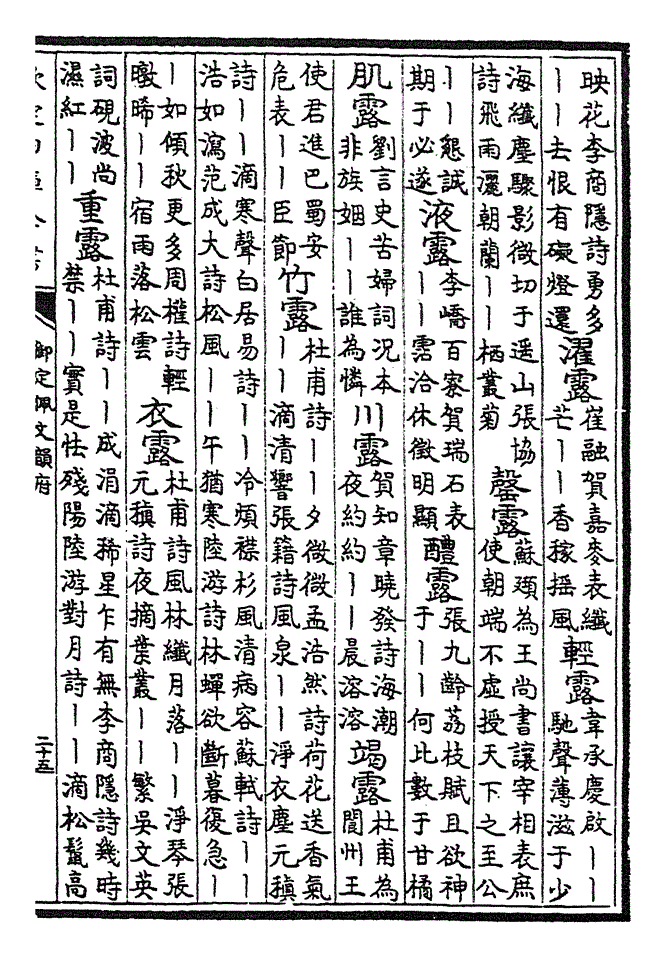 映花李商隱詩勇多
丨丨去恨有礙燈還
濯露
崔融賀嘉麥表纖
芒丨丨香稼揺風
輕露
韋承慶啟丨丨
馳聲薄滋于少
海纖塵驟影微切于遥山張協
詩飛雨灑朝蘭丨丨栖叢菊
罄露
蘇頲為王尚書讓宰相表庶
使朝端不虚授天下之至公
丨丨懇誠
期于必遂
液露
李嶠百寮賀瑞石表
丨丨霑洽休徵明顯
醴露
張九齡荔枝賦且欲神
于丨丨何比數于甘橘
肌露
劉言史苦婦詞况本
非族姻丨丨誰為憐
川露
賀知章曉發詩海潮
夜約約丨丨晨溶溶
竭露
杜甫為
閬州王
使君進巴蜀安
危表丨丨臣節
竹露
杜甫詩丨丨夕微微孟浩然詩荷花送香氣
丨丨滴清響張籍詩風泉丨丨淨衣塵元稹
詩丨丨滴寒聲白居易詩丨丨冷煩襟杉風清病容蘇軾詩丨丨
浩如瀉范成大詩松風丨丨午猶寒陸游詩林蟬欲斷暮復急丨
丨如傾秋更多周權詩輕
暾晞丨丨宿雨落松雲
衣露
杜甫詩風林纖月落丨丨淨琴張
元稹詩夜摘葉叢丨丨繁吳文英
詞硯波尚
濕紅丨丨
重露
杜甫詩丨丨成涓滴稀星乍有無李商隱詩幾時
禁丨丨實是怯殘陽陸游對月詩丨丨滴松鬣高
欽定四庫全書
御定佩文韻府
二十五